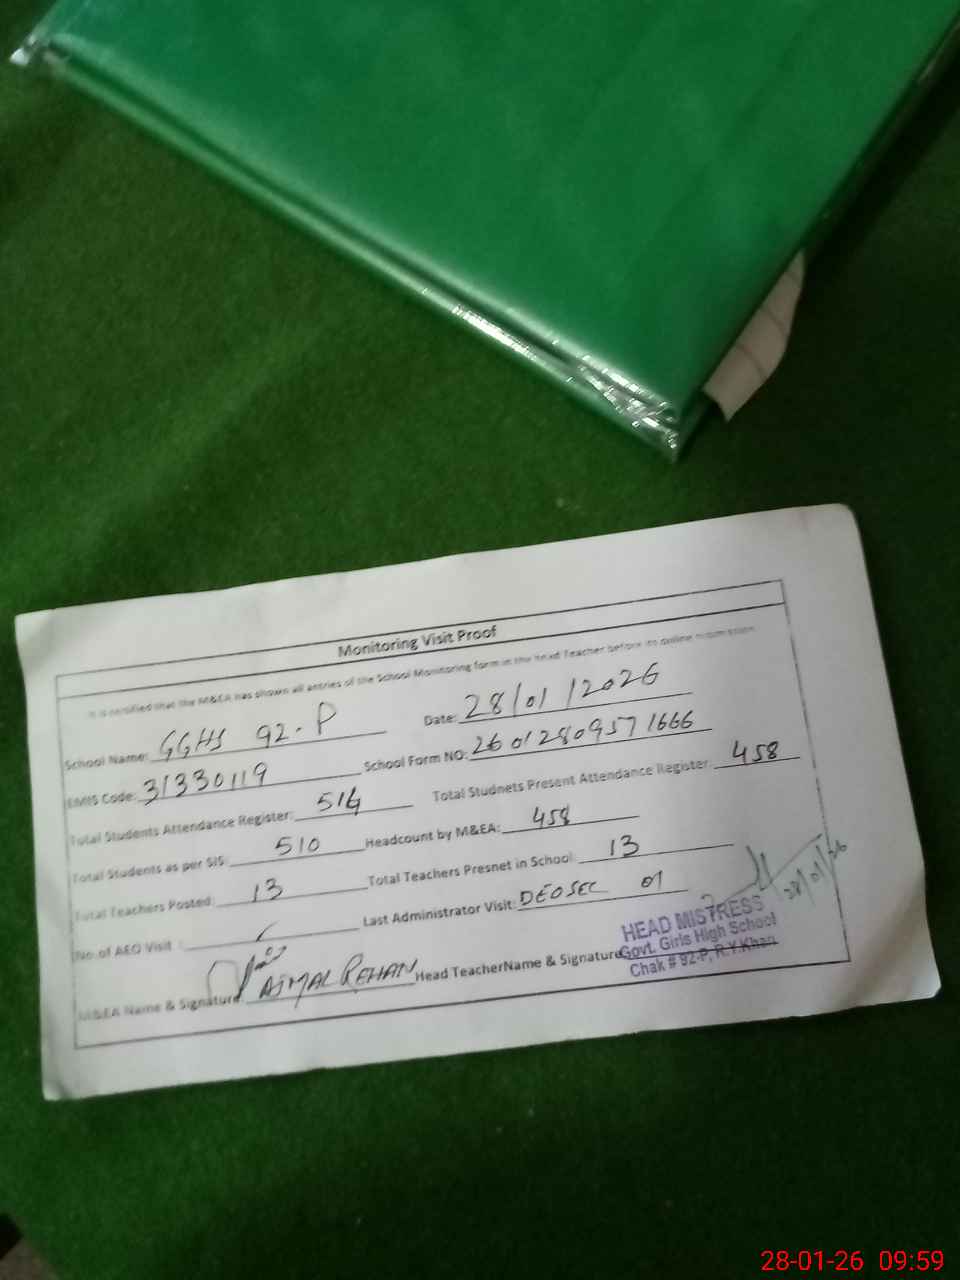 Monitoring Visit Proof
It is certified that the M&EA has shown all entries of the School Monitoring form in the Head Teacher before its online submission
School Name: GGHS 92-P Date: 28/01/2026
EMIS Code: 31330119 School Form NO: 26012809571666
Total Students Attendance Register: 514 Total Studnets Present Attendance Register: 458
Total Students as per SIS: 510 Headcount by M&EA: 458
Total Teachers Posted: 13 Total Teachers Presnet in School: 13
No. of AEO Visit : Last Administrator Visit: DEOSEC 01
M&EA Name & Signature AJMAL REHAN Head TeacherName & Signature
28/01/26
HEAD MISTRESS
Govt. Girls High School
Chak # 92-P, R.Y.Khan
28-01-26 09:59